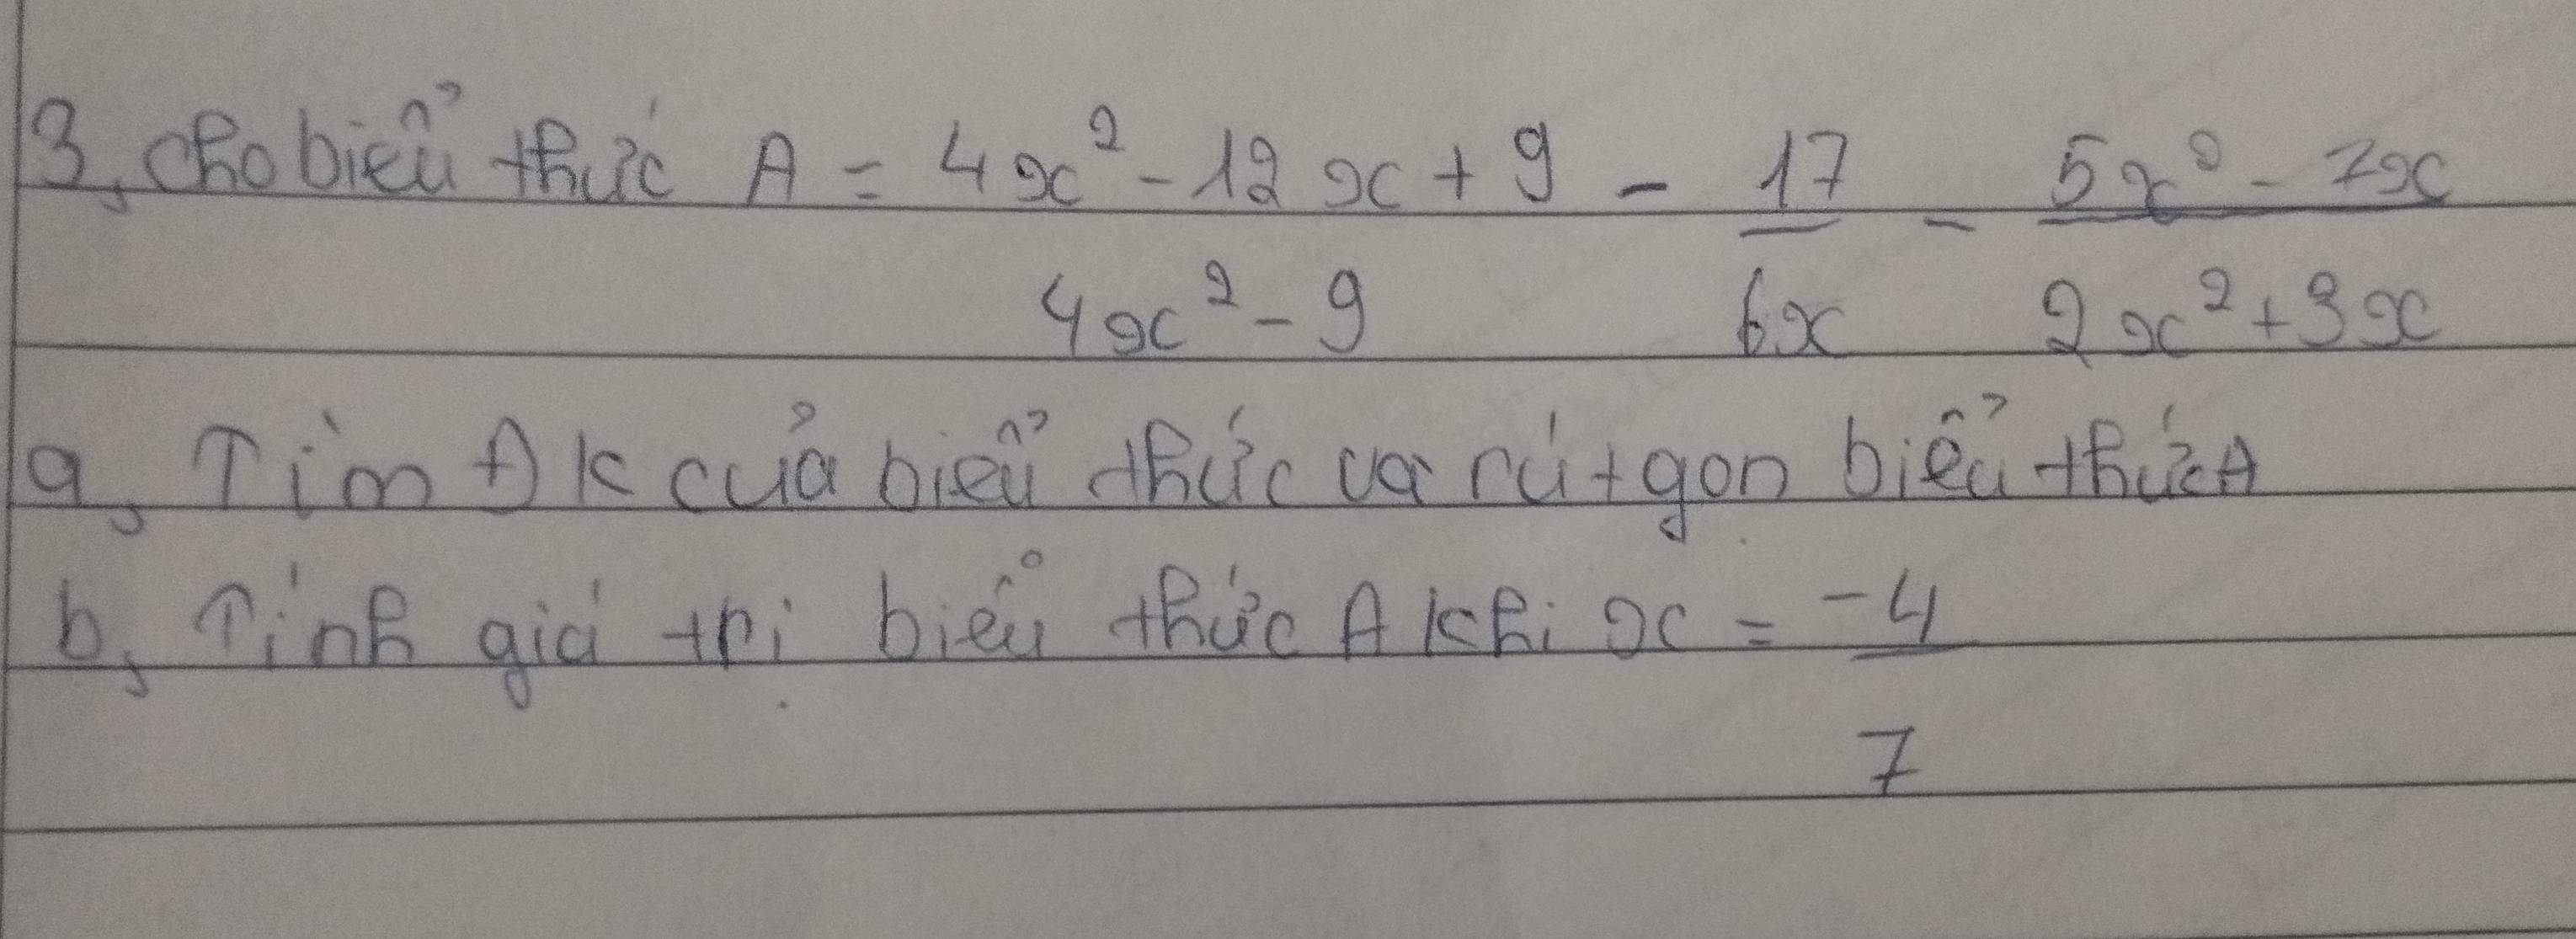 3, cho biểu thức A = 4x² - 12x + 9 - 17 - 5x² - 7x
4x² - 9 6x 2x² + 3x
a, Tìm ĐK của biểu thức và rút gọn biểu thức A
b, Tính giá trị biểu thức A khi x = -4
7